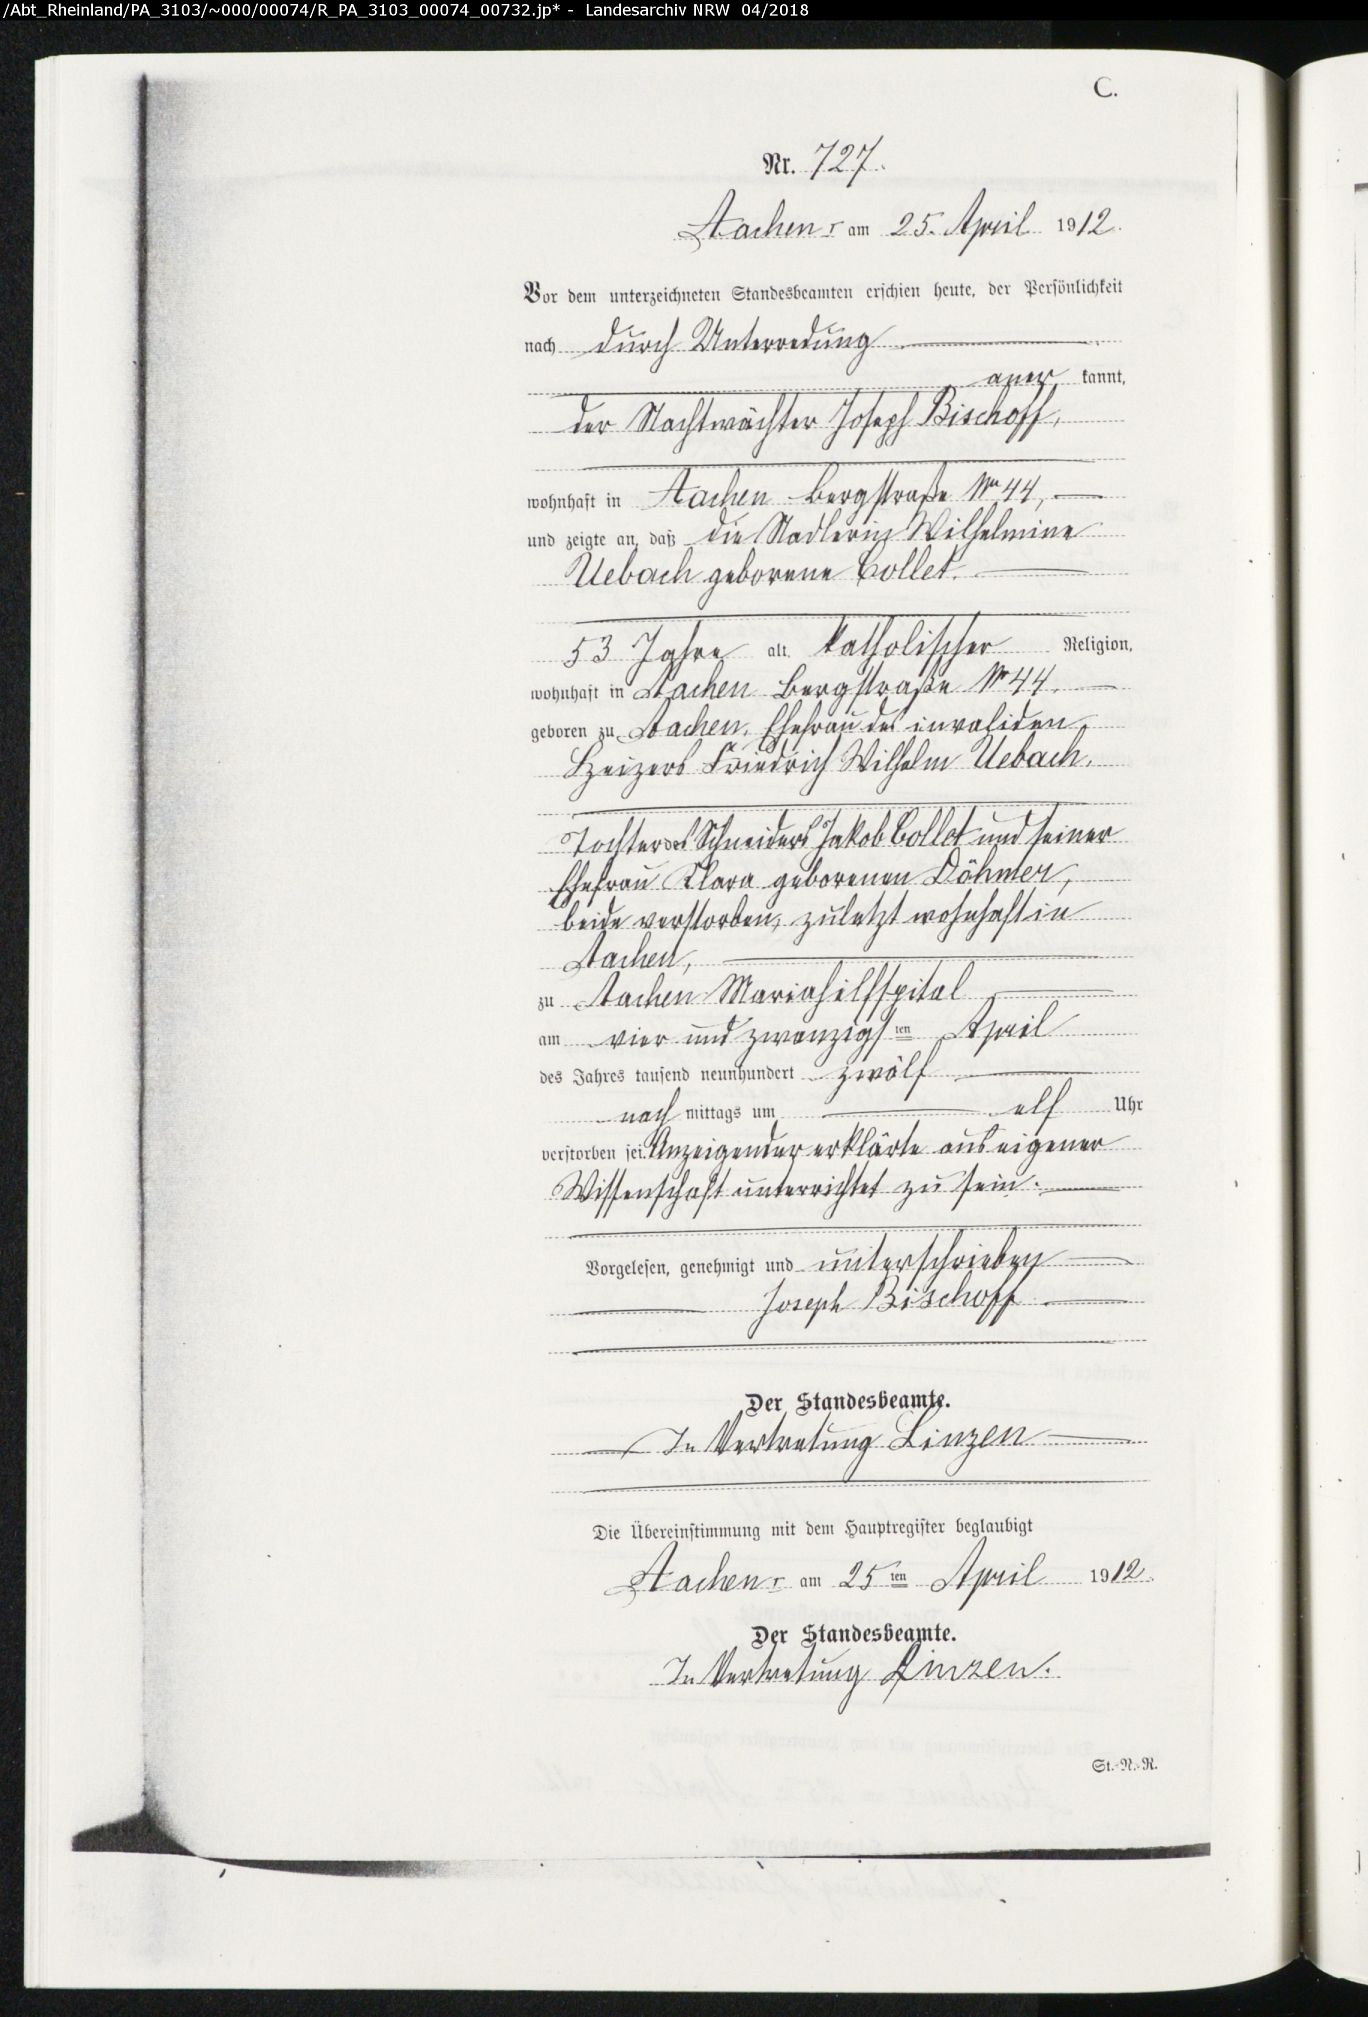 /Abt_Rheinland/PA_3103/~000/00074/R_PA_3103_00074_00732.jp* - Landesarchiv NRW 04/2018
C.
Nr. 727.
Aachen, am 25. April 1912.
Vor dem unterzeichneten Standesbeamten erschien heute, der Persönlichkeit
nach durch Unterredung
aner kannt,
der Nachtwächter Joseph Bischoff,
wohnhaft in Aachen Bergstraße Nr 44,
und zeigte an, daß die Nadlerin Wilhelmine
Uebach geborene Collet.
53 Jahre alt, katholischer Religion,
wohnhaft in Aachen Bergstraße Nr 44.
geboren zu Aachen, Ehefrau des invaliden
Heizers Friedrich Wilhelm Uebach.
Tochter des Schneiders Jakob Collet und seiner
Ehefrau Klara geborenen Döhmer,
beide verstorben, zuletzt wohnhaft in
Aachen,
zu Aachen Mariahilfspital
am vier und zwanzigsten April
des Jahres tausend neunhundert zwölf
nach mittags um elf Uhr
verstorben sei. Anzeigender erklärte aus eigener
Wissenschaft unterrichtet zu sein.
Vorgelesen, genehmigt und unterschrieben
Joseph Bischoff
Der Standesbeamte.
In Vertretung Linzen
Die Übereinstimmung mit dem Hauptregister beglaubigt
Aachen, am 25ten April 1912.
Der Standesbeamte.
In Vertretung Linzen.
St.-N.-R.